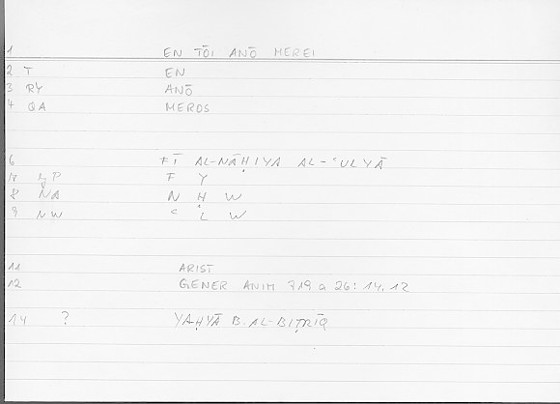 1 EN TŌI ANŌ MEREI
2 T EN
3 RY ANŌ
4 QA MEROS
6 FĪ AL-NĀḤIYA AL-ʿULYĀ
LP F Y
8 NA N Ḥ W
9 NW ʿ L W
11 ARIST
12 GENER ANIM 719 a 26: 14.12
14 ? YAḤYĀ B. AL-BIṬRĪQ